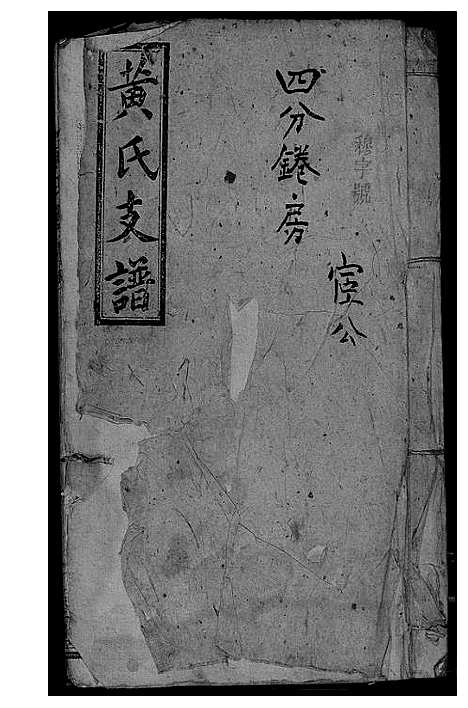 穆字號
宦公
四分鎈房
黃氏支譜